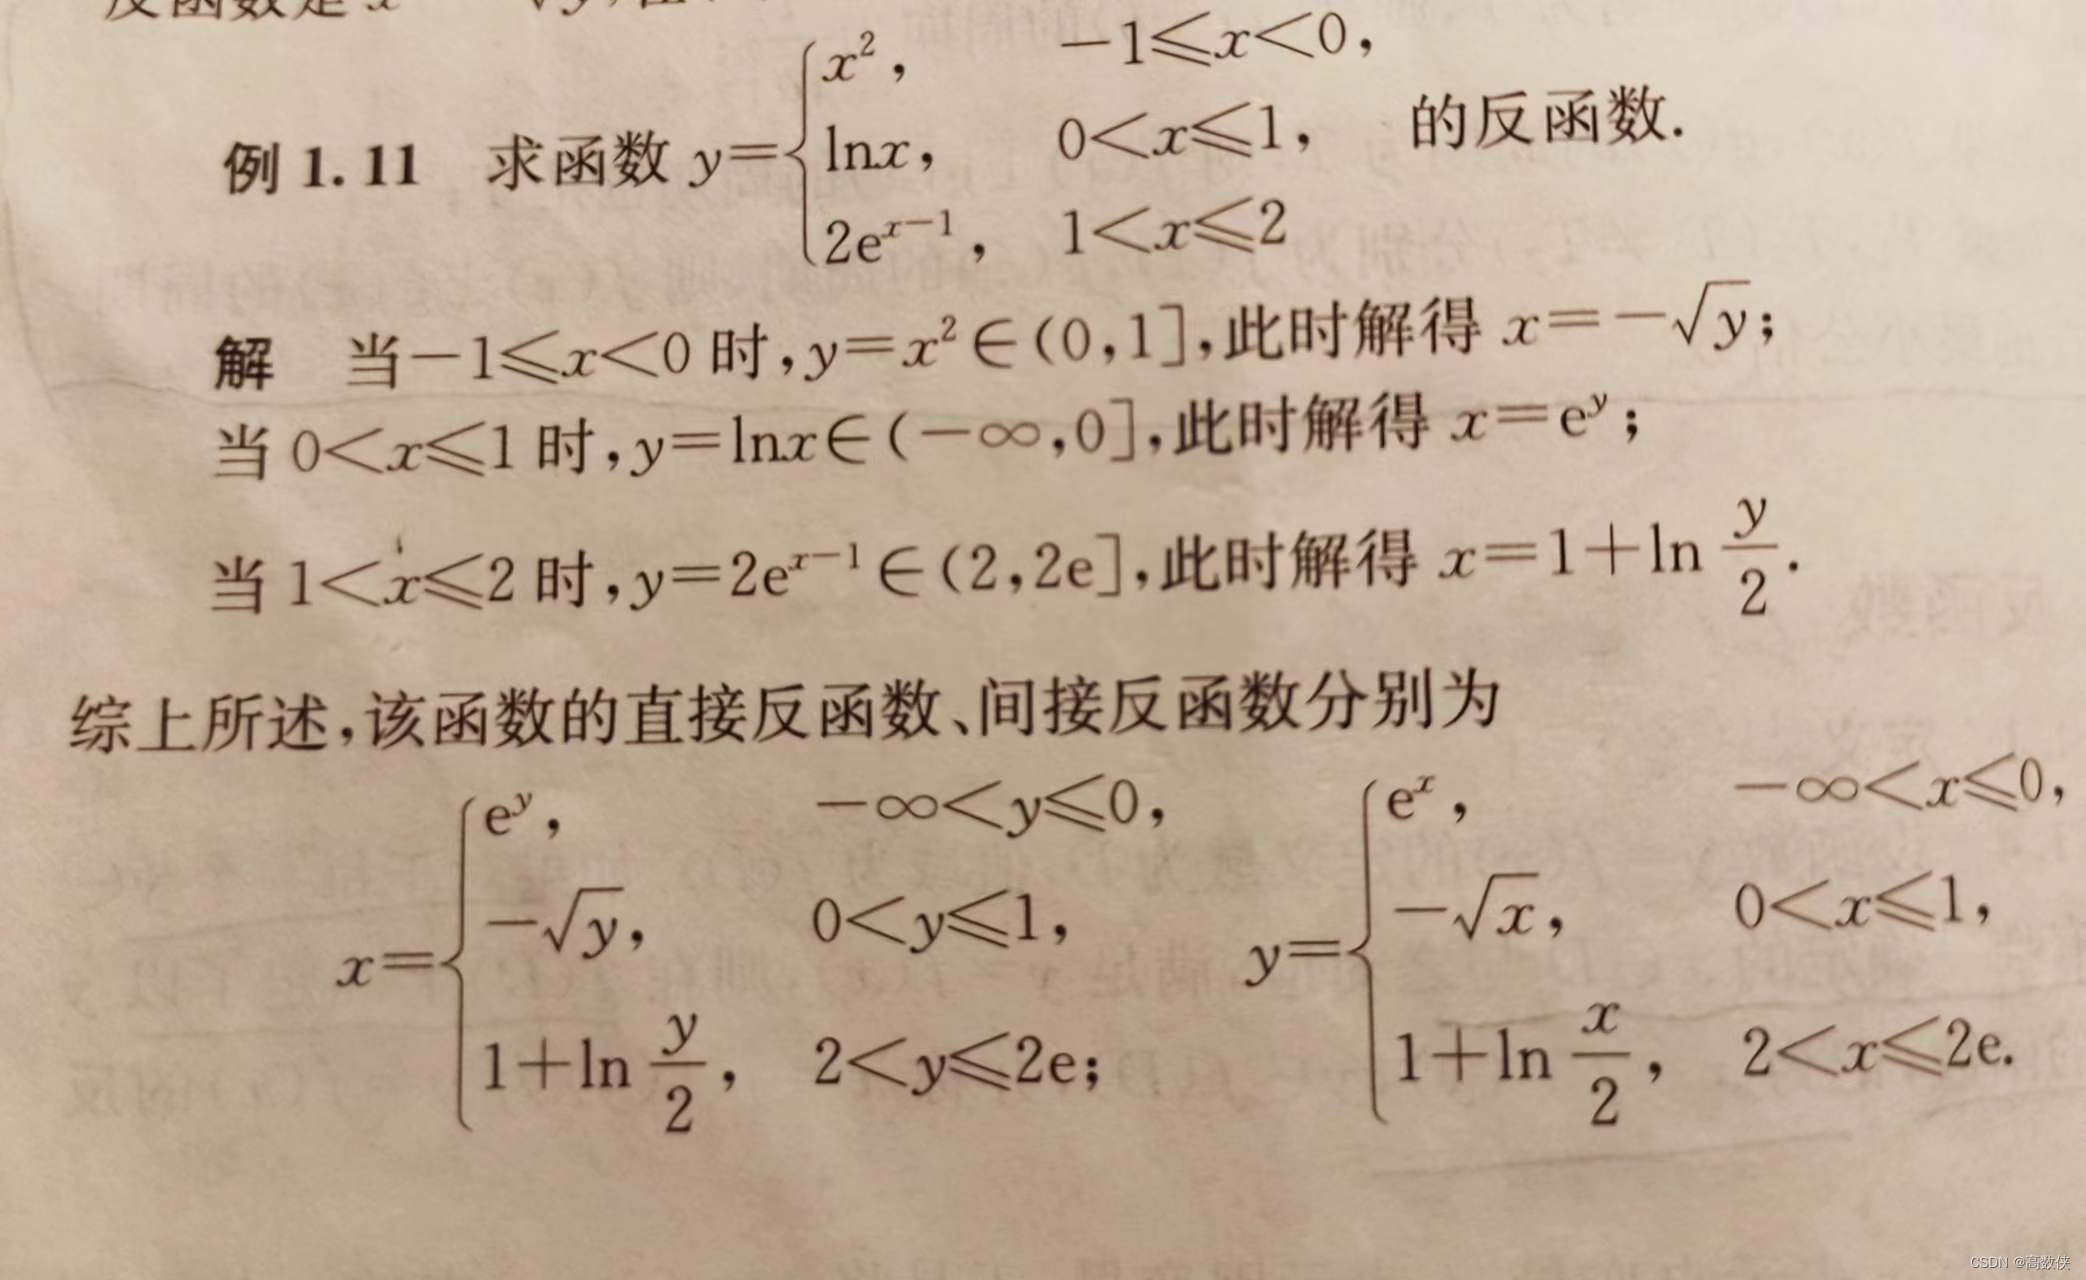 反函数是 x
例 1.11 求函数 y={x², −1≤x<0,
lnx, 0<x≤1, 的反函数.
2e^{x−1}, 1<x≤2
解 当−1≤x<0 时,y=x²∈(0,1],此时解得 x=−√y;
当 0<x≤1 时,y=lnx∈(−∞,0],此时解得 x=e^y;
当 1<x≤2 时,y=2e^{x−1}∈(2,2e],此时解得 x=1+ln y/2.
综上所述,该函数的直接反函数、间接反函数分别为
x={e^y, −∞<y≤0, y={e^x, −∞<x≤0,
−√y, 0<y≤1, −√x, 0<x≤1,
1+ln y/2, 2<y≤2e; 1+ln x/2, 2<x≤2e.
CSDN @高数侠